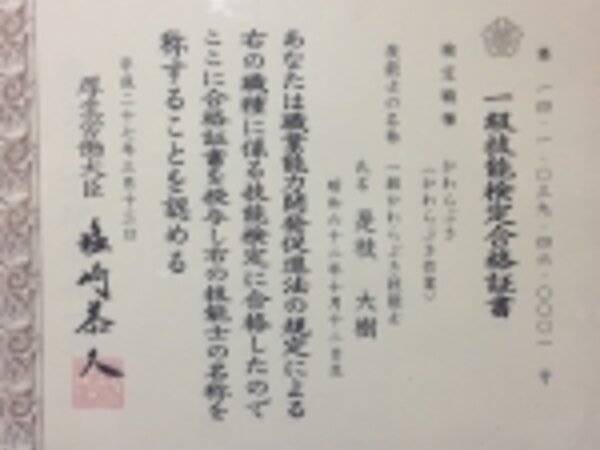 第一四-一-〇三九-四六-〇〇〇一号
一級技能検定合格証書
検定職種 かわらぶき
（かわらぶき作業）
技能士の名称 一級かわらぶき技能士
氏名 是枝 大樹
昭和六十二年十月十二日生
あなたは職業能力開発促進法の規定による
右の職種に係る技能検定に合格したので
ここに合格証書を授与し右の技能士の名称を
称することを認める
平成二十七年三月十三日
厚生労働大臣 塩崎恭久